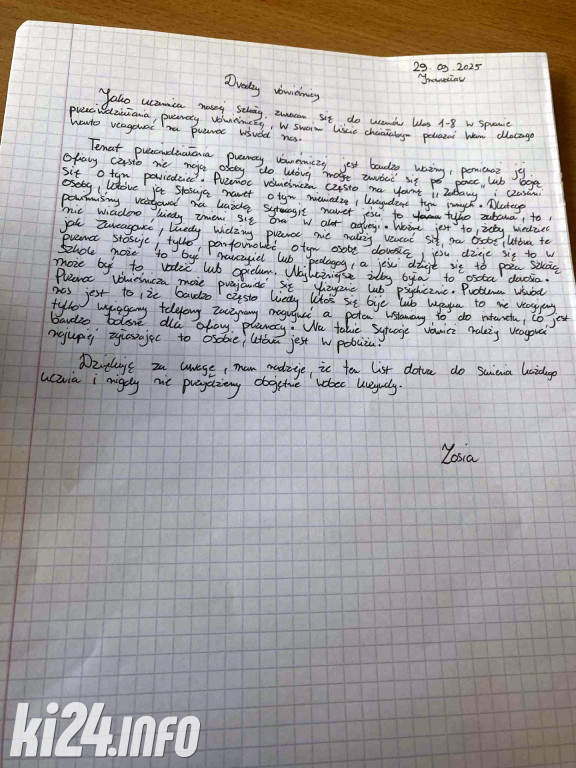 29.09.2025
Inowrocław
Drodzy rówieśnicy
Jako uczennica naszej szkoły, zwracam się do uczniów klas 1-8 w sprawie
przeciwdziałania przemocy rówieśniczej, w swoim liście chciałabym pokazać Wam dlaczego
warto reagować na przemoc wśród nas.
Temat przeciwdziałania przemocy rówieśniczej jest bardzo ważny, ponieważ jej
ofiary często nie mają osoby do której mogą zwrócić się po pomoc lub boją
się o tym powiedzieć. Przemoc rówieśnicza często ma formę zabawy i czasami
osoby, które ją stosują nawet o tym nie wiedzą, krzywdząc tym innych. Dlatego
powinniśmy reagować na każdą sytuację nawet jeśli to tylko zabawa, bo
nie wiadomo kiedy zmieni się ona w akt agresji. Ważne jest to, żeby wiedzieć
jak zareagować, kiedy widzimy przemoc nie należy rzucać się na osobę, która tę
przemoc stosuje, tylko poinformować o tym osobę dorosłą, jeśli dzieje się to w
szkole może to być nauczyciel lub pedagog, a jeśli dzieje się to poza szkołą
może być to rodzic lub opiekun. Najważniejsze żeby była to osoba dorosła.
Przemoc rówieśnicza może przejawiać się fizycznie lub psychicznie. Problemem wśród
nas jest to, że bardzo często kiedy ktoś się bije lub wyzywa to nie reagujemy
tylko wyciągamy telefony zaczynamy nagrywać a potem wstawiamy to do internetu, co jest
bardzo bolesne dla ofiary przemocy. Na takie sytuacje również należy reagować
najlepiej zgłaszając to osobie, która jest w pobliżu.
Dziękuję za uwagę, mam nadzieję, że ten list dotrze do sumienia każdego
ucznia i nigdy nie przejdziemy obojętnie wobec krzywdy.
Zosia
ki24.info